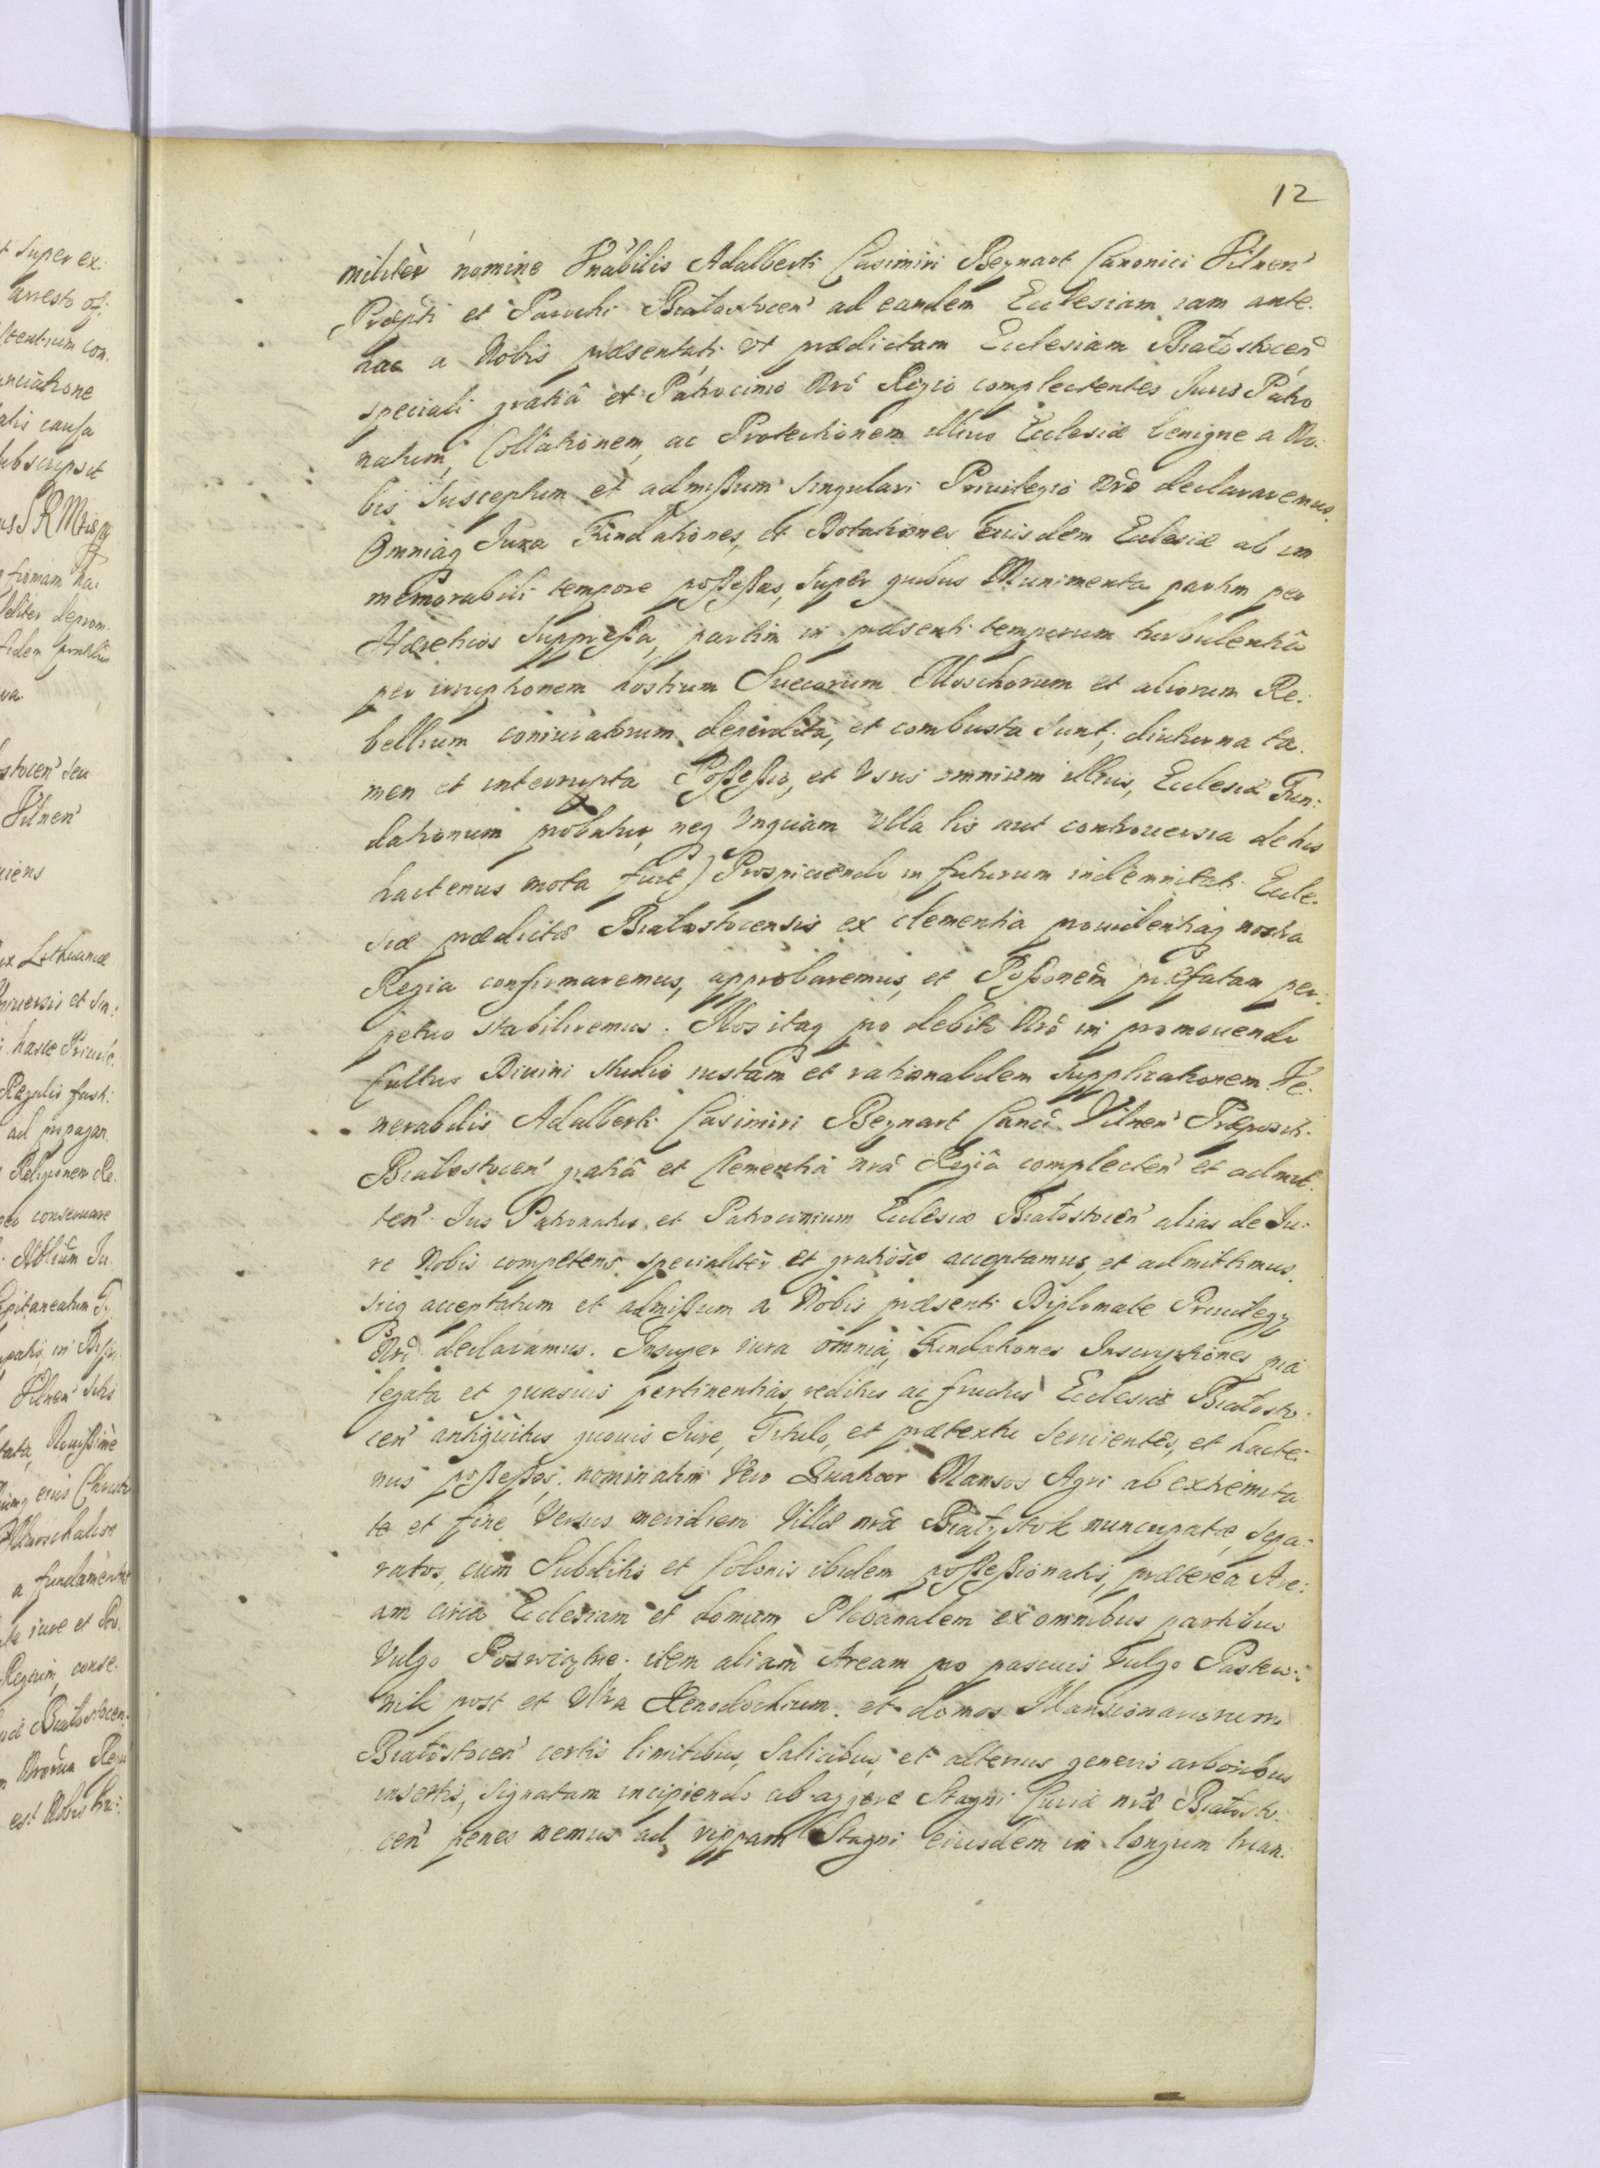 12
militèr nomine Vnãbilis Adalberti Casimiri Beynart Canonici Vilnen̓
Præpti et Parochi Białostocen̓ ad eandem Ecclesiam iam ante-
hac a Nobis præsentati vt prædictam Ecclesiam Białostocen̓
speciali gratiâ et Patrocinio Nr̃o Regio complectentes Juris Patro
natum, Collationem, ac Protectionem illius Ecclesiæ benigne a No-
bis Susceptum et admißum singulari Priuilegio Nr̃o declararemus.
Omniaq Juxa Fundationes, et Dotationes eiusdem Eclesiæ ab im
memorabili tempore poßeßas, Super quibus Munimenta partim per
Hæreticos Suppreßa, partim in præsenti temporum turbulentiâ
per irruptionem hostium Suecorum Moschorum et aliorum Re-
bellium coniuratorum deperdita, et combusta sunt; diuturna ta-
men et interrupta Poßeßio, et Vsus omnium illius, Eclesiæ Fun-
dationum probatur, neq Vnquam Vlla lis aut controuersia de his
hactenus mota fuit) Prospiciendo in futurum indemnitati Eccle-
siæ prædictæ Białostocensis ex clementia prouidentiaq nostra
Regia confirmaremus, approbaremus, et Poßonem̃ præfatam per-
petuo stabiliremus. Nos itaq pro debito Nr̃o in promouendo
Cultus Diuini Studio iustam et rationabilem Supplicationem Ve-
nerabilis Adalberti Casimiri Beynart Canci Vilnen̓ Præposit.
Białostocen̓ gratiâ et Clementiâ nr̃â Regiâ complecten̓ et admit-
ten̓ Jus Patronatus et Patrocinium Eclesiæ Białostocen̓ alias de Ju-
re Nobis competens specialitèr et gratiose acceptamus, et admittimus,
sicq acceptatum et admißum a Nobis præsenti Diplomate Priuilegy
Nr̃i declaramus. Insuper iura omnia, Fundationes Inscriptiones pia
legata et quasuis pertinentias, reditus ac fructus Eclesiæ Białosto-
cen̓ antiquitus quouis Jure, Titulo, et prætextu seruientes, et hacte-
nus poßeßos, nominatim Vero Quatuor Mansos Agri ab extremita
te et fine Versus meridiem Villæ nr̃æ Białystok nuncupatæ, sepa-
ratos, cum Subditis et Colonis ibidem poßeßionatis, præterea Are-
am circa Eclesiam et domum Plebanalem ex omnibus partibus
Vulgo Poswiątne. item aliam Aream pro pascuis Vulgo Pastew-
nik post et Vltra Xenodochium. et domos Mansionariorum
Białostocen̓ certis limitibus, Salicibus, et alterius generis arboribus
insertis, signatam incipiendo ab aggere Stagni Curiæ nr̃æ Białosto-
cen̓ penes nemus ad rippam Stagni eiusdem in longum trian-